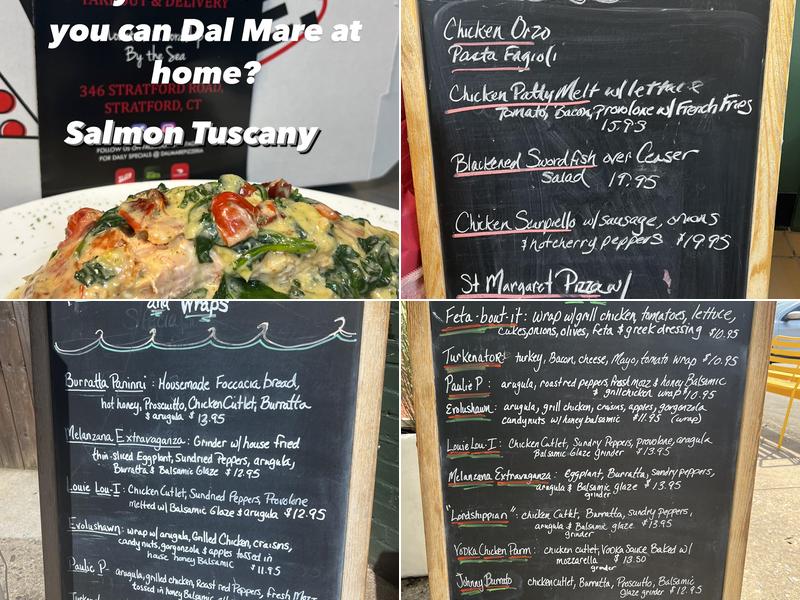 TAKEOUT & DELIVERY
you can Dal Mare at
home?
By the Sea
346 STRATFORD ROAD,
STRATFORD, CT
Salmon Tuscany
FOLLOW US ON
FOR DAILY SPECIALS @ DALMAREPIZZERIA
Chicken Orzo
Pasta Fagioli
Chicken Patty Melt w/ lettuce
Tomato, Bacon, provolone w/ French Fries
15.95
Blackened Swordfish over Ceaser
Salad 19.95
Chicken Surpiello w/ sausage, onions
& hot cherry peppers $19.95
St Margaret Pizza w/
and Wraps
Burratta Paninni : Housemade Foccacia bread,
hot honey, Proscuitto, Chicken Cutlet, Burratta
& arugula $ 13.95
Melanzana Extravaganza : Grinder w/ house fried
thin-sliced Eggplant, Sundried Peppers, arugula,
Burratta & Balsamic Glaze $12.95
Louie Lou-I : Chicken Cutlet, Sundried Peppers, Provolone
melted w/ Balsamic Glaze & arugula $12.95
Erolushawn : wrap w/ arugula, Grilled Chicken, craisins,
candy nuts, gorgonzola & apples tossed in
house honey Balsamic $11.95
Paulie P. arugula, grilled chicken, Roast red Peppers, fresh Mozz
tossed in honey Balsamic
Feta-bout-it : wrap w/ grill chicken, tomatoes, lettuce,
cukes, onions, olives, feta & greek dressing $10.95
Turkenator : turkey, Bacon, cheese, Mayo, tomato wrap $10.95
Paulie P : arugula, roast red peppers, fresh moz & honey Balsamic
& grill chicken wrap $10.95
Erolushawn : arugula, grill chicken, craisins, apples, gorgonzola
candy nuts w/ honey balsamic $11.95 (wrap)
Louie Lou-I : Chicken Cutlet, Sundry Peppers, provolone, arugula
Balsamic Glaze grinder $13.95
Melanzana Extravaganza : eggplant, Burratta, sundry peppers,
arugula & Balsamic glaze $13.95
grinder
"Lordshippian" : chicken Cutlet, Burratta, sundry peppers,
arugula & Balsamic glaze $13.95
grinder
Vodka Chicken Parm : chicken cutlet, Vodka Sauce Baked w/
mozzarella $13.50
grinder
Johnny Burrado chicken cutlet, Burratta, Proscutto, Balsamic
Glaze grinder $12.95